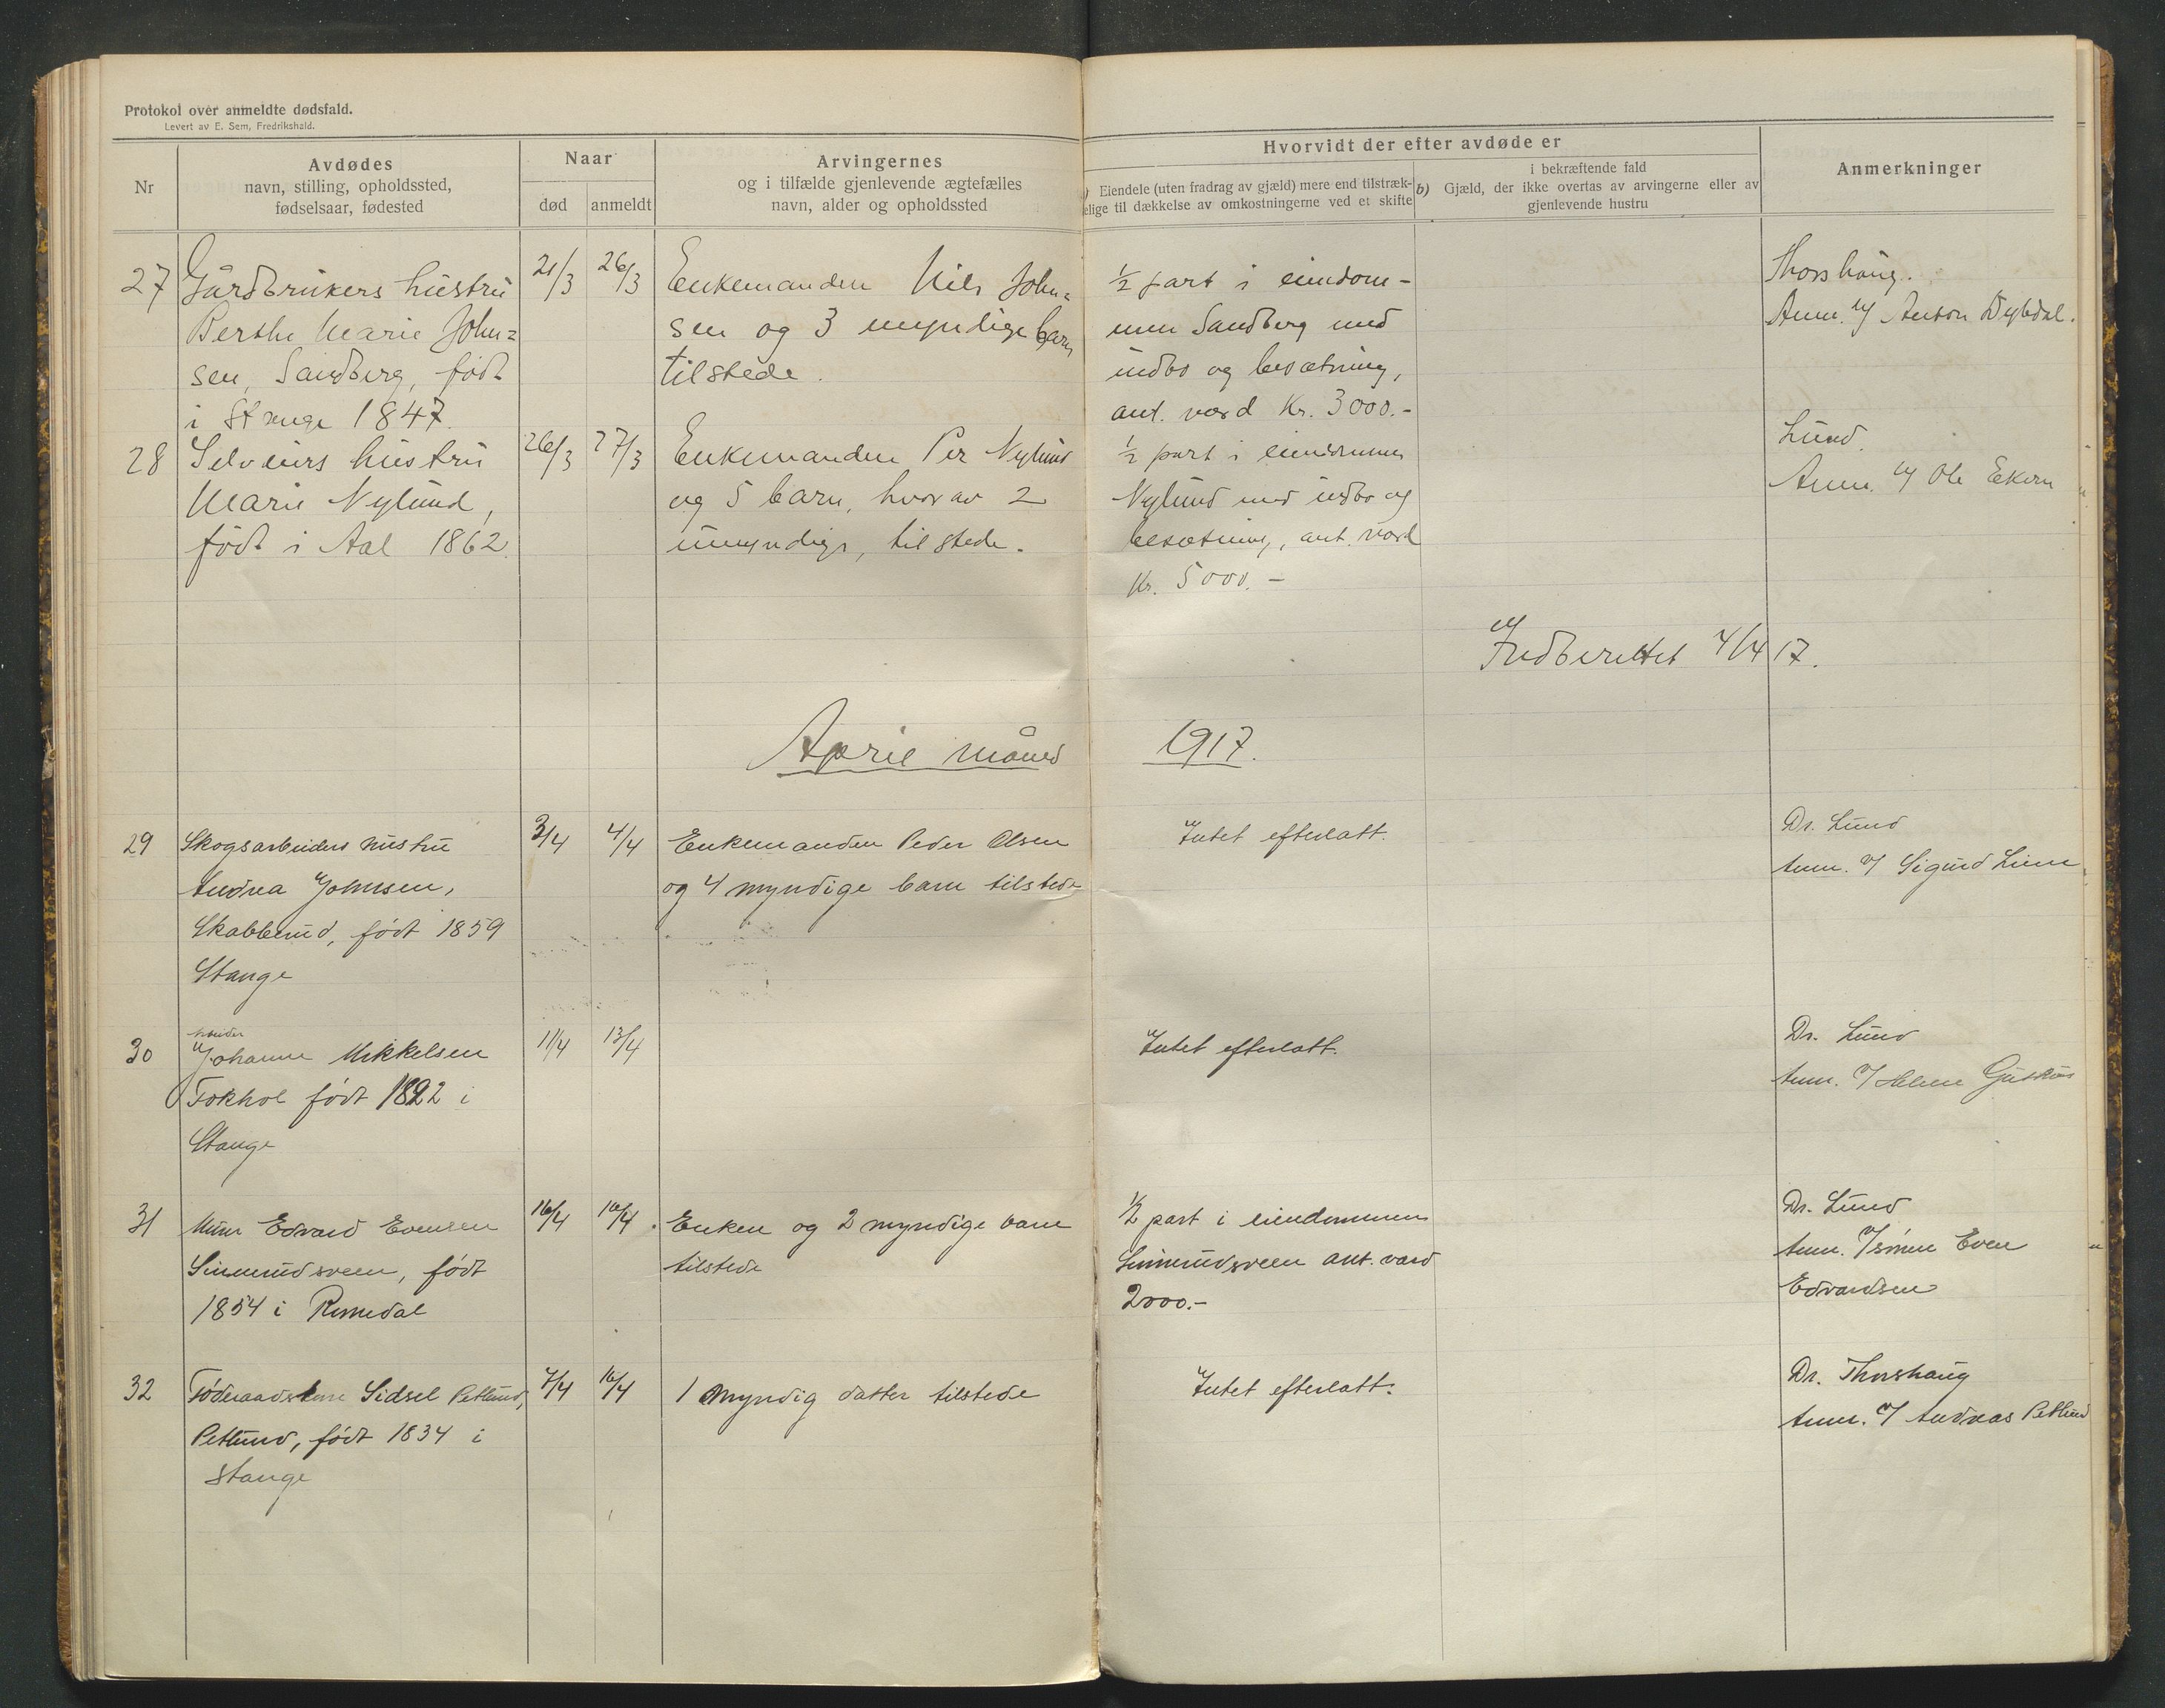 Protokol over anmeldte dødsfald.
Levert av E. Sem, Fredrikshald.
Nr
Avdødes
navn, stilling, opholdssted,
fødselsaar, fødested
Naar
død
anmeldt
Arvingernes
og i tilfælde gjenlevende ægtefælles
navn, alder og opholdssted
Hvorvidt der efter avdøde er
Eiendele (uten fradrag av gjæld) mere end tilstræk-
elige til dækkelse av omkostningerne ved et skifte
i bekræftende fald
b) Gjæld, der ikke overtas av arvingerne eller av
gjenlevende hustru
Anmerkninger
27
Gårdbrukers hustru
Berthe Marie John=
sen, Sandberg, født
i Stange 1847.
21/3
26/3
Enkemanden Nils John=
sen og 3 myndige barn
tilstede.
1/2 part i eiendom-
men Sandberg med
indbo og besætning,
ant. værd Kr. 3000.-
Thorshaug.
Anm. v/ Anton Dybdal.
28
Selveiers hustru
Marie Nylund,
født i Aal 1862.
26/3
27/3
Enkemanden Per Nylund
og 5 barn, hvorav 2
umyndige, tilstede.
1/2 part i eiendommen
Nylund med indbo og
besætning, ant. værd
Kr. 5000.-
Lund.
Anm. v/ Ole Ekern
Indberettet 4/4 17.
April måned 1917.
29
Skogsarbeiders hustru
Andrea Johnsen,
Skabberud, født 1859
Stange
3/4
4/4
Enkemanden Peder Olsen
og 4 myndige barn tilstede
Intet efterlatt.
Dr. Lund
Anm. v/ Sigurd Lien
30
Johanne Mikkelsen
Tokhol født 1892 i
Stange
11/4
13/4
Intet efterlatt.
Dr. Lund
Anm. v/ Helene
31
Murer Edvard Evensen
Sinnerudsveen, født
1854 i Romedal
16/4
16/4
Enken og 2 myndige barn
tilstede
1/2 part i eiendommen
Sinnerudsveen ant. værd
2000.-
Dr. Lund
Anm. v/ sønnen Even
Edvardsen
32
Føderaadskone Sidsel Petlund,
Petlund, født 1834 i
Stange
7/4
16/4
1 myndig datter tilstede
Intet efterlatt.
Dr. Thorshaug
Anm. v/ Andreas Petlund